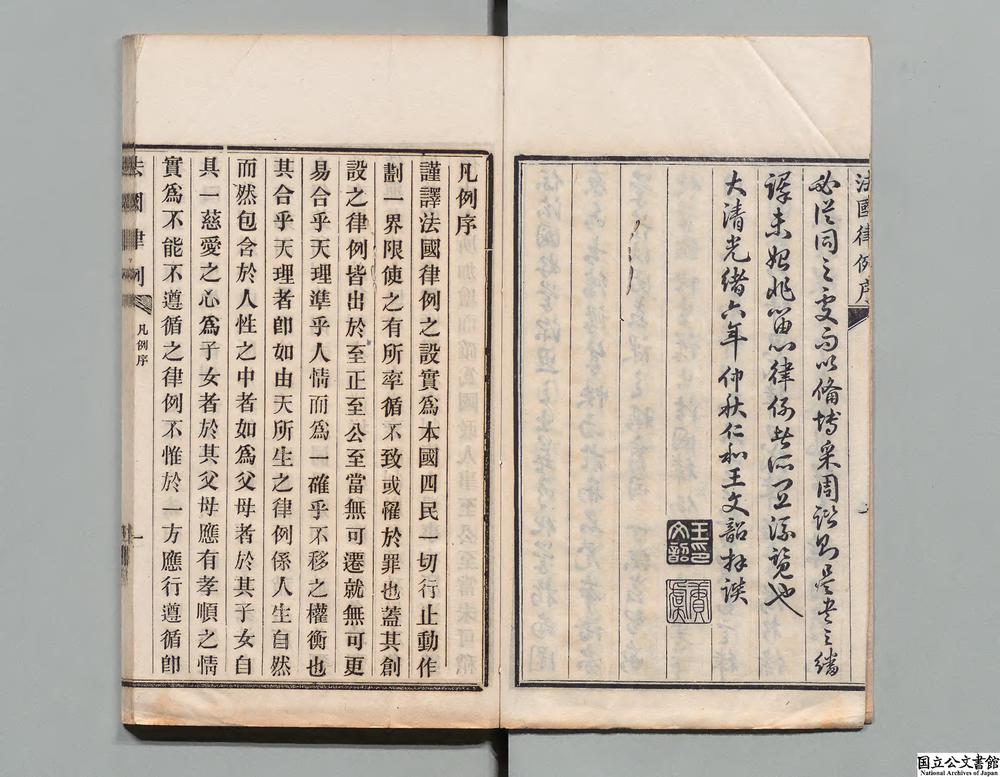 法國律例序
必從同之文而以備博采周諮則是書之繙
譯未始非留心律例者所宜流覽也
大清光緒六年仲秋仁和王文韶拜譔
王文韶印
凡例序
謹譯法國律例之設實爲本國四民一切行止動作
劃一界限使之有所率循不致或罹於罪也蓋其創
設之律例皆出於至正至公至當無可遷就無可更
易合乎天理準乎人情而爲一確乎不移之權衡也
其合乎天理者卽如由天所生之律例係人生自然
而然包含於人性之中者如爲父母者於其子女自
具一慈愛之心爲子女者於其父母應有孝順之情
實爲不能不遵循之律例不惟於一方應行遵循卽
法國律例
凡例序
一
国立公文書館
National Archives of Japan